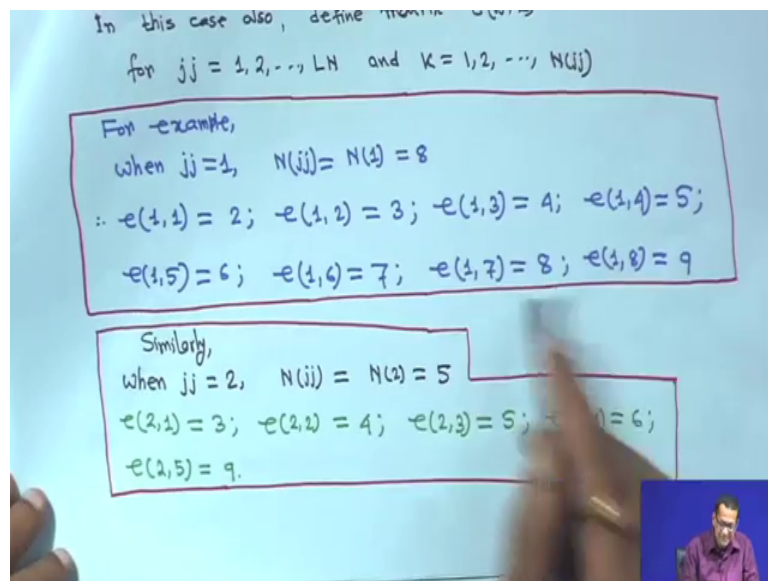 In this case also, define
for jj = 1,2,..., LN and K = 1,2, ..., N(jj)
For example,
when jj=1, N(jj)= N(1) = 8
∴ e(1,1) = 2; e(1,2) = 3; e(1,3) = 4; e(1,4)=5;
e(1,5)=6; e(1,6)=7; e(1,7)=8; e(1,8)=9
Similarly,
when jj=2, N(jj) = N(2) = 5
e(2,1)=3; e(2,2) = 4; e(2,3)=5; )=6;
e(2,5)=9.